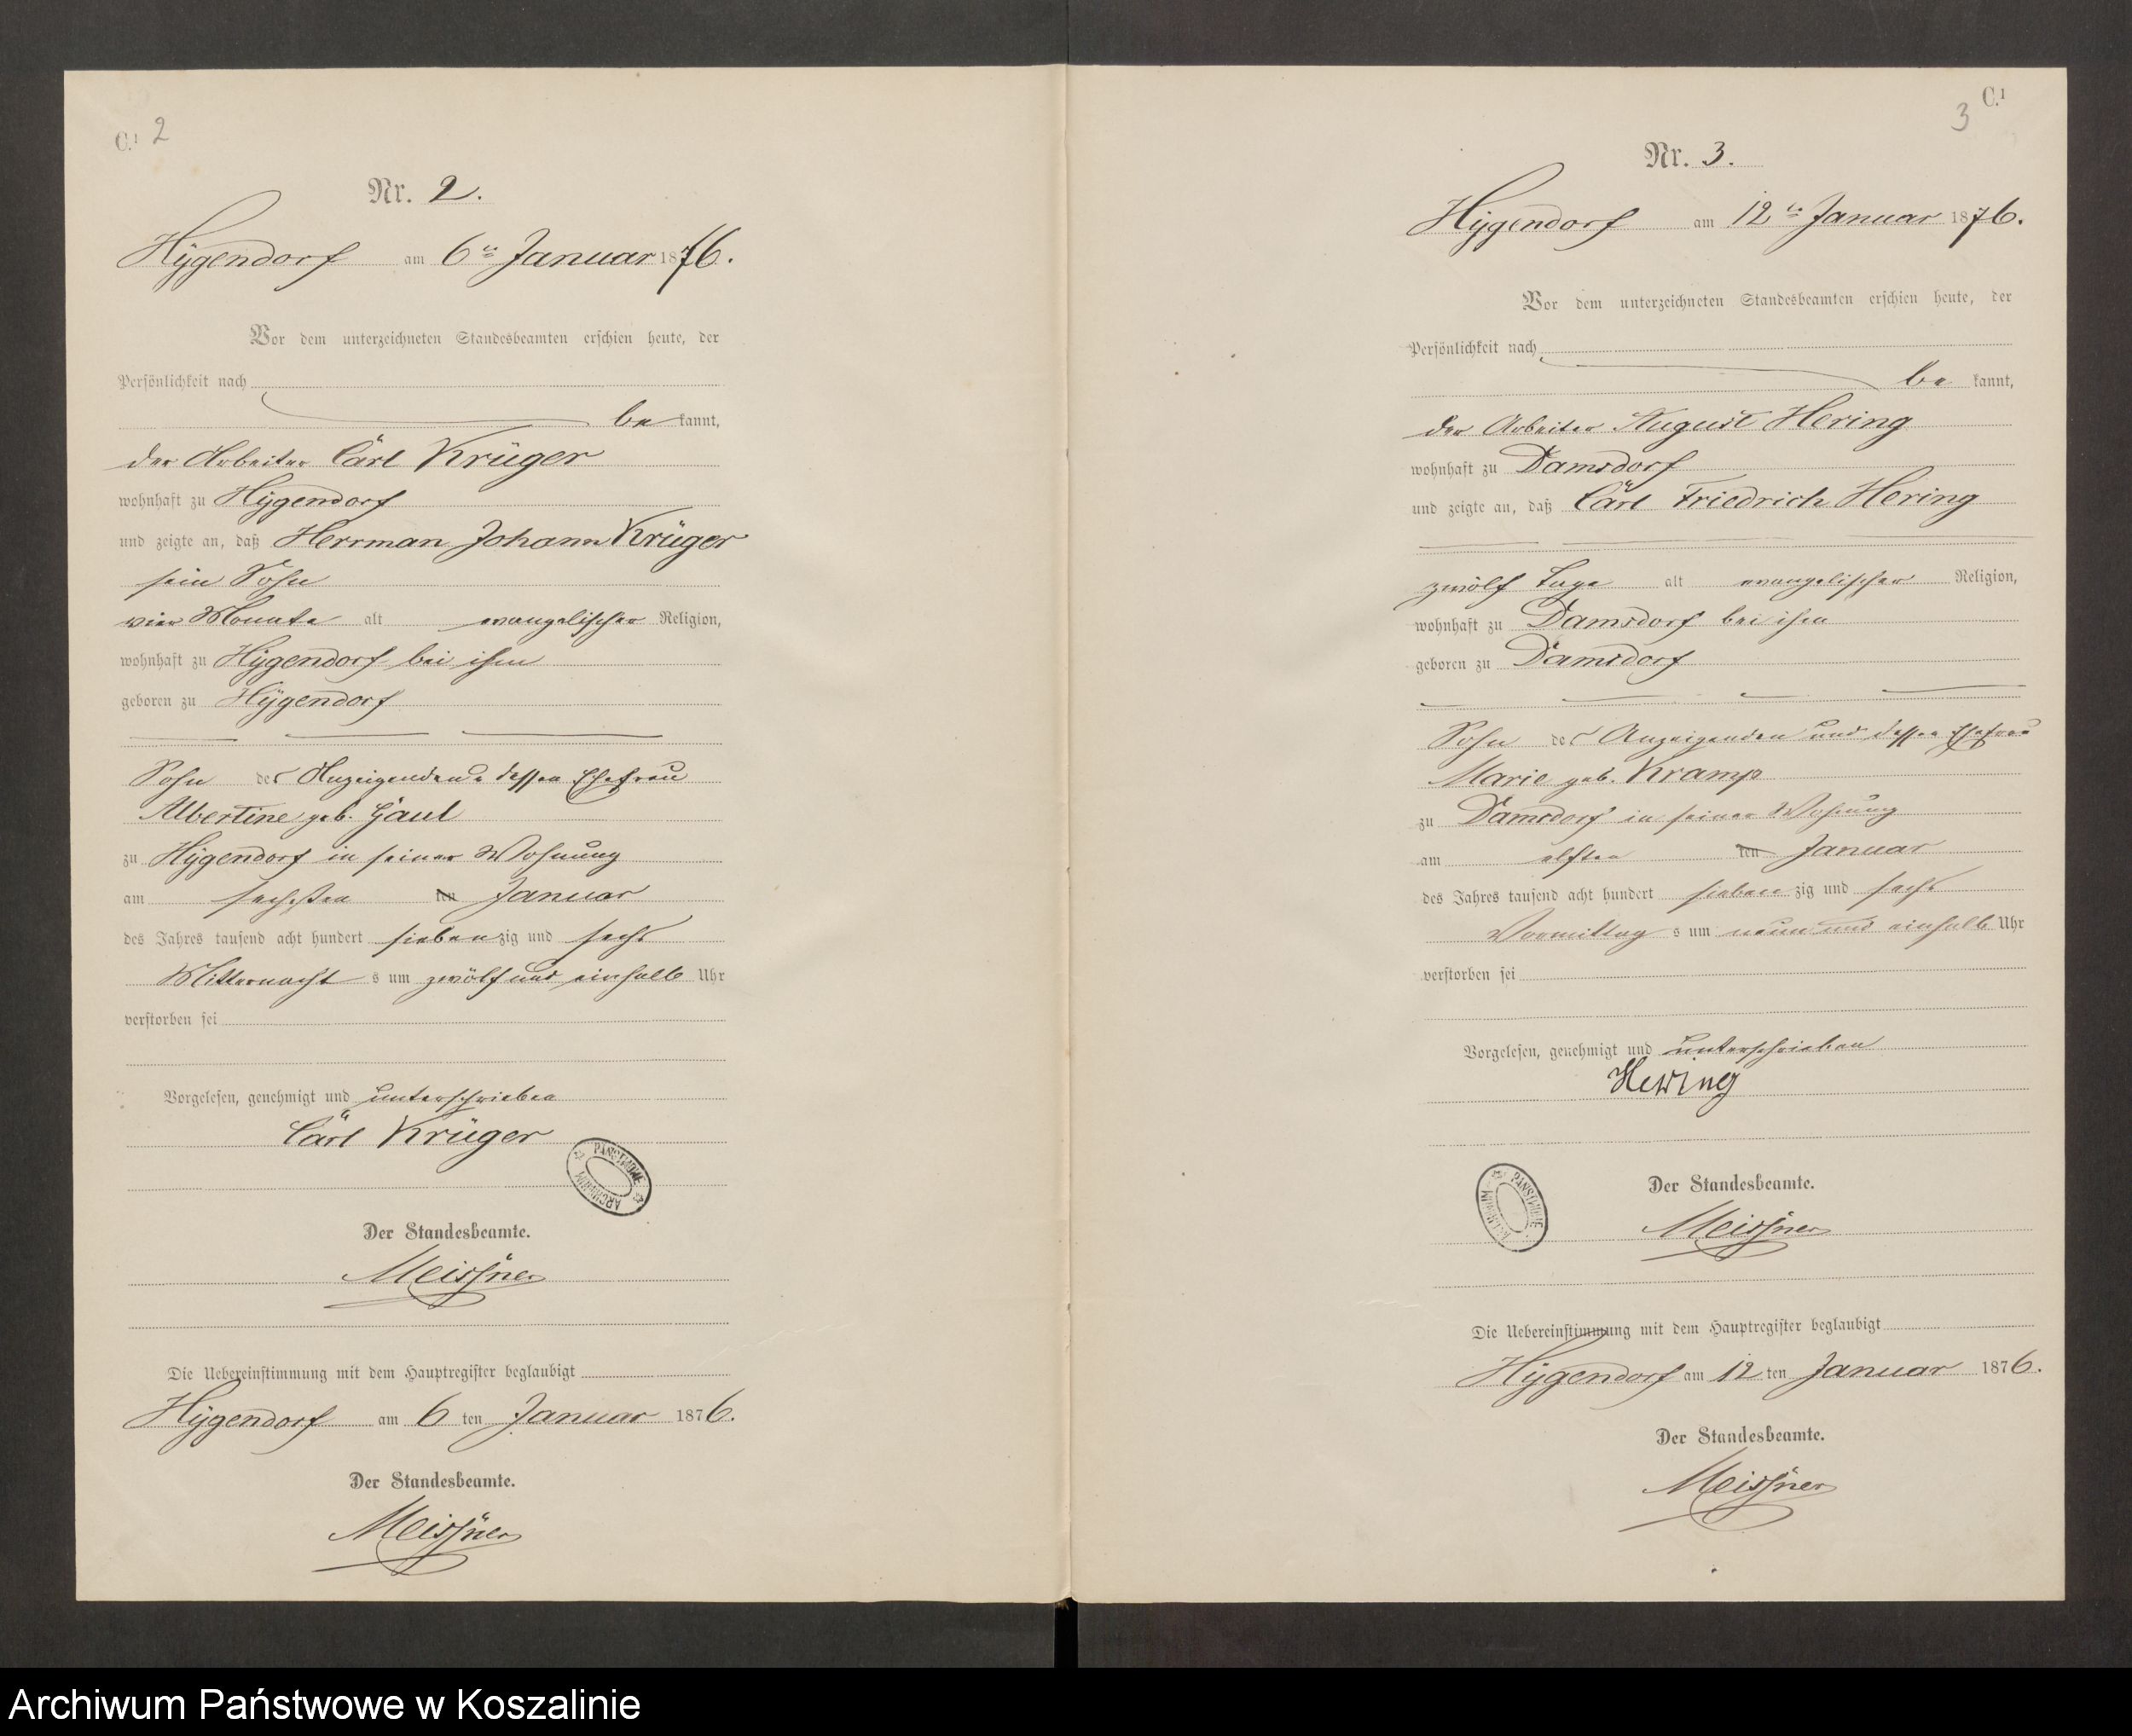 C.1 2
Nr. 2.
Hÿgendorf am 6ten Januar 1876.
Vor dem unterzeichneten Standesbeamten erschien heute, der
Persönlichkeit nach
be kannt,
der Arbeiter Carl Krüger
wohnhaft zu Hÿgendorf
und zeigte an, daß Herrman Johann Krüger
sein Sohn
vier Monate alt evangelischer Religion,
wohnhaft zu Hÿgendorf bei ihm
geboren zu Hÿgendorf
Sohn des Anzeigenden u dessen Ehefrau
Albertine geb. Gaul
zu Hÿgendorf in seiner Wohnung
am sechsten ten Januar
des Jahres tausend acht hundert siebenzig und sechs
Mitternacht s um zwölf und einhalb Uhr
verstorben sei
Vorgelesen, genehmigt und unterschrieben
Carl Krüger
ARCHIWUM PAŃSTWOWE
Der Standesbeamte.
Meissner
Die Uebereinstimmung mit dem Hauptregister beglaubigt
Hÿgendorf am 6 ten Januar 1876.
Der Standesbeamte.
Meissner
3 C.1
Nr. 3.
Hÿgendorf am 12ten Januar 1876.
Vor dem unterzeichneten Standesbeamten erschien heute, der
Persönlichkeit nach
be kannt,
der Arbeiter August Hering
wohnhaft zu Damsdorf
und zeigte an, daß Carl Friedrich Hering
zwölf Tage alt evangelischer Religion,
wohnhaft zu Damsdorf bei ihm
geboren zu Damsdorf
Sohn des Anzeigenden und dessen Ehefrau
Marie geb. Kramp
zu Damsdorf in seiner Wohnung
am elften ten Januar
des Jahres tausend acht hundert sieben zig und sechs
Vormittag s um neun und einhalb Uhr
verstorben sei
Vorgelesen, genehmigt und unterschrieben
Hering
ARCHIWUM PAŃSTWOWE
Der Standesbeamte.
Meissner
Die Uebereinstimmung mit dem Hauptregister beglaubigt
Hÿgendorf am 12 ten Januar 1876.
Der Standesbeamte.
Meissner
Archiwum Państwowe w Koszalinie